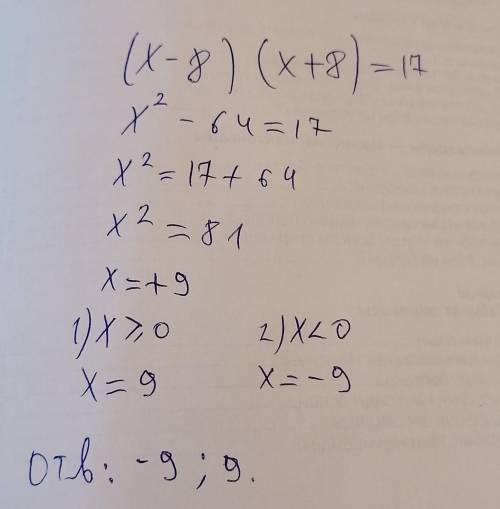 (x-8) (x+8)=17
x² - 64=17
x²=17+64
x²=81
x=+9
1) x ≥ 0 2) x < 0
x = 9 x = -9
Отв: -9 ; 9.